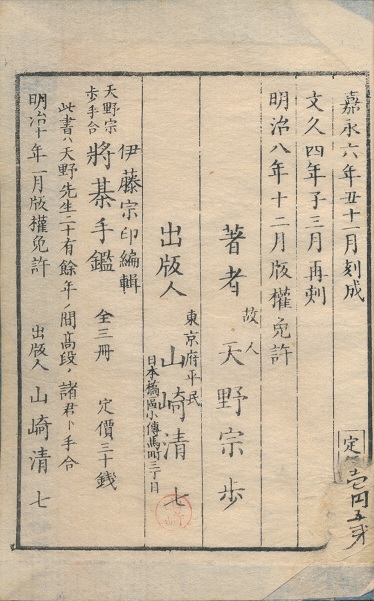 嘉永六年丑十一月刻成
文久四年子三月再刻
明治八年十二月版權免許
定
壱円五
著者 故人 天野宗歩
出版人 東京府平民 山﨑清七
日本橋區小傳馬町三丁目
伊藤宗印編輯
天野宗
歩手合
將棊手鑑 全三冊 定價三十銭
此書ハ天野先生二十有餘年ノ間高段ノ諸君ト手合
明治十年一月版權免許 出版人 山﨑清七